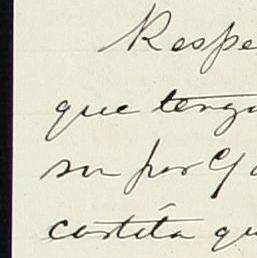 Respe
que tenga
su por
costita qu